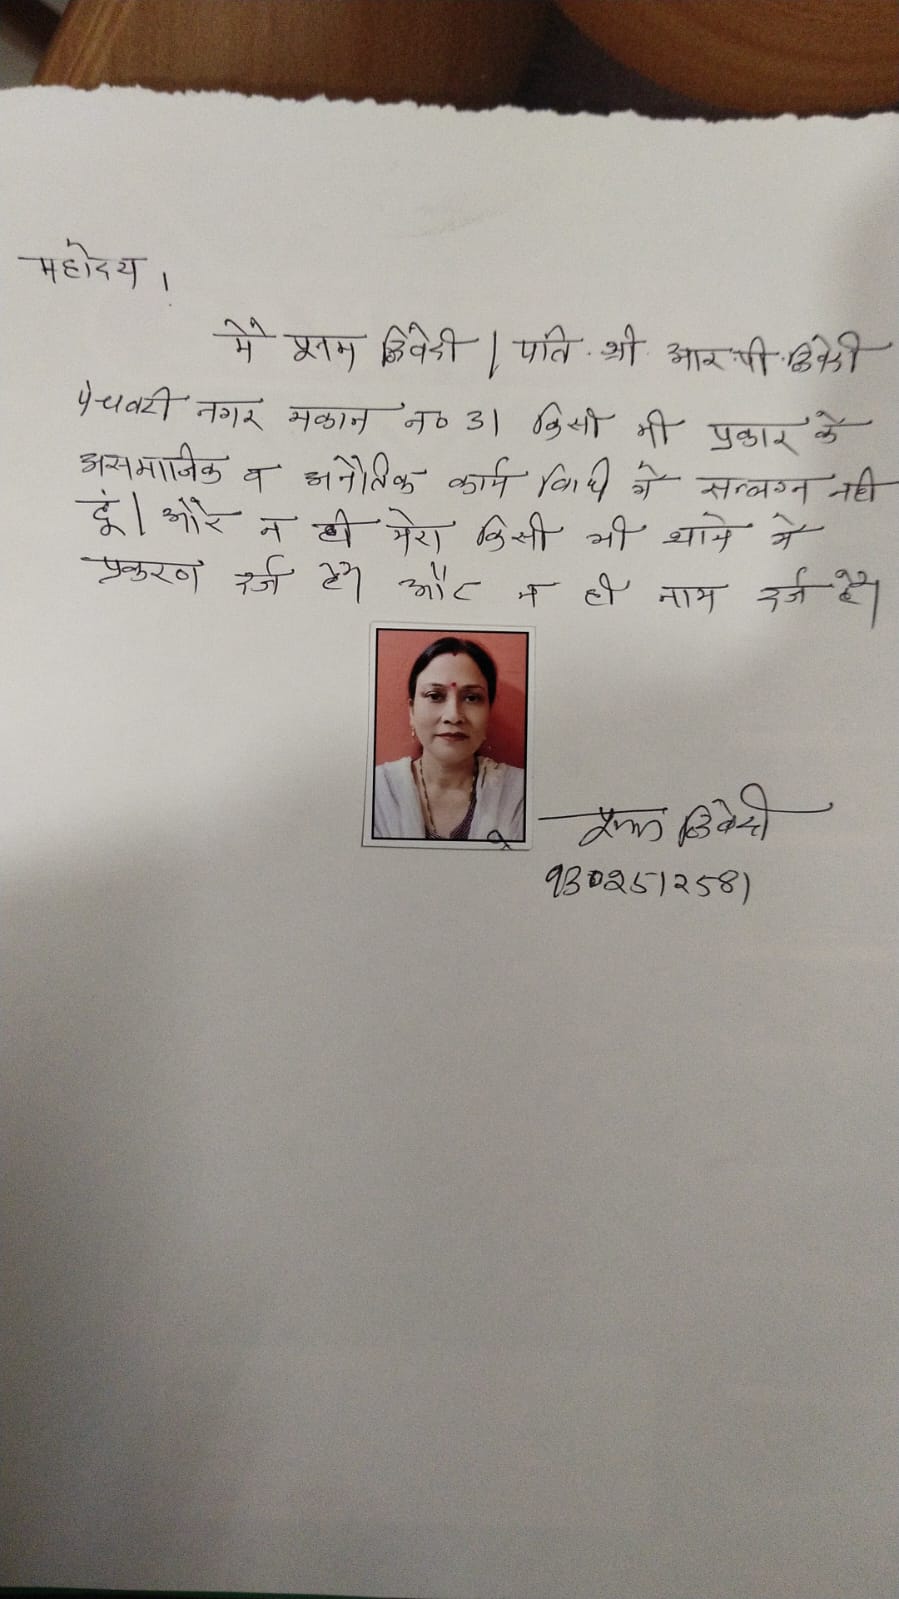 महोदय ।
मै पूनम द्विवेदी | पति श्री आर.पी.द्विवेदी
पंचवटी नगर मकान न० 31 किसी भी प्रकार के
असमाजिक व अनैतिक कार्य विधि मे सन्लग्न नही
हूं | और न ही मेरा किसी भी थाने मे
प्रकरण दर्ज है। और न ही नाम दर्ज है।
पूनम द्विवेदी
9302512581